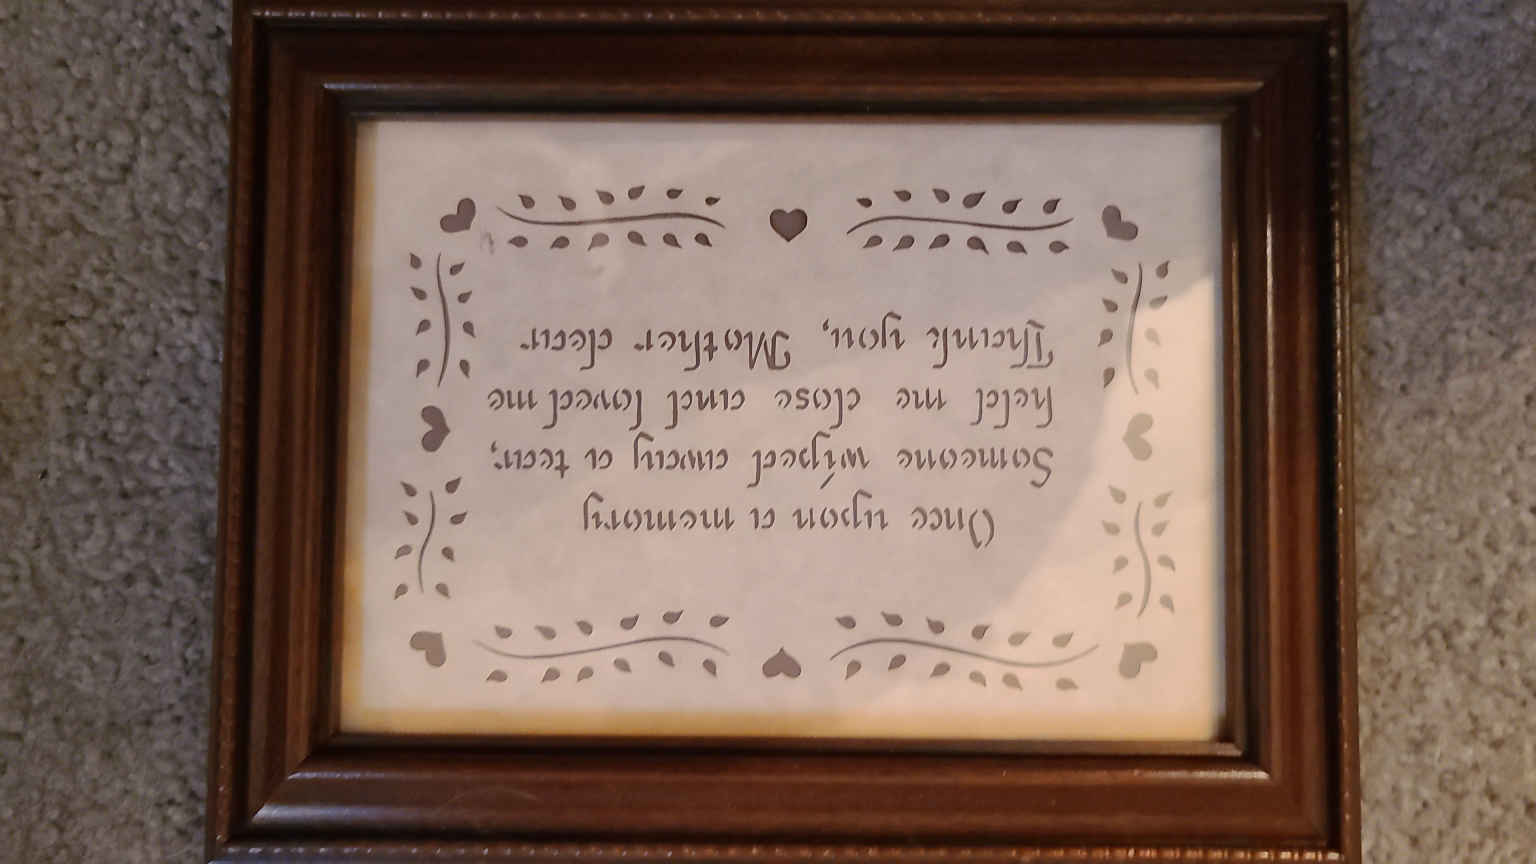 Once upon a memory
Someone wiped away a tear,
held me close and loved me
Thank you, Mother dear